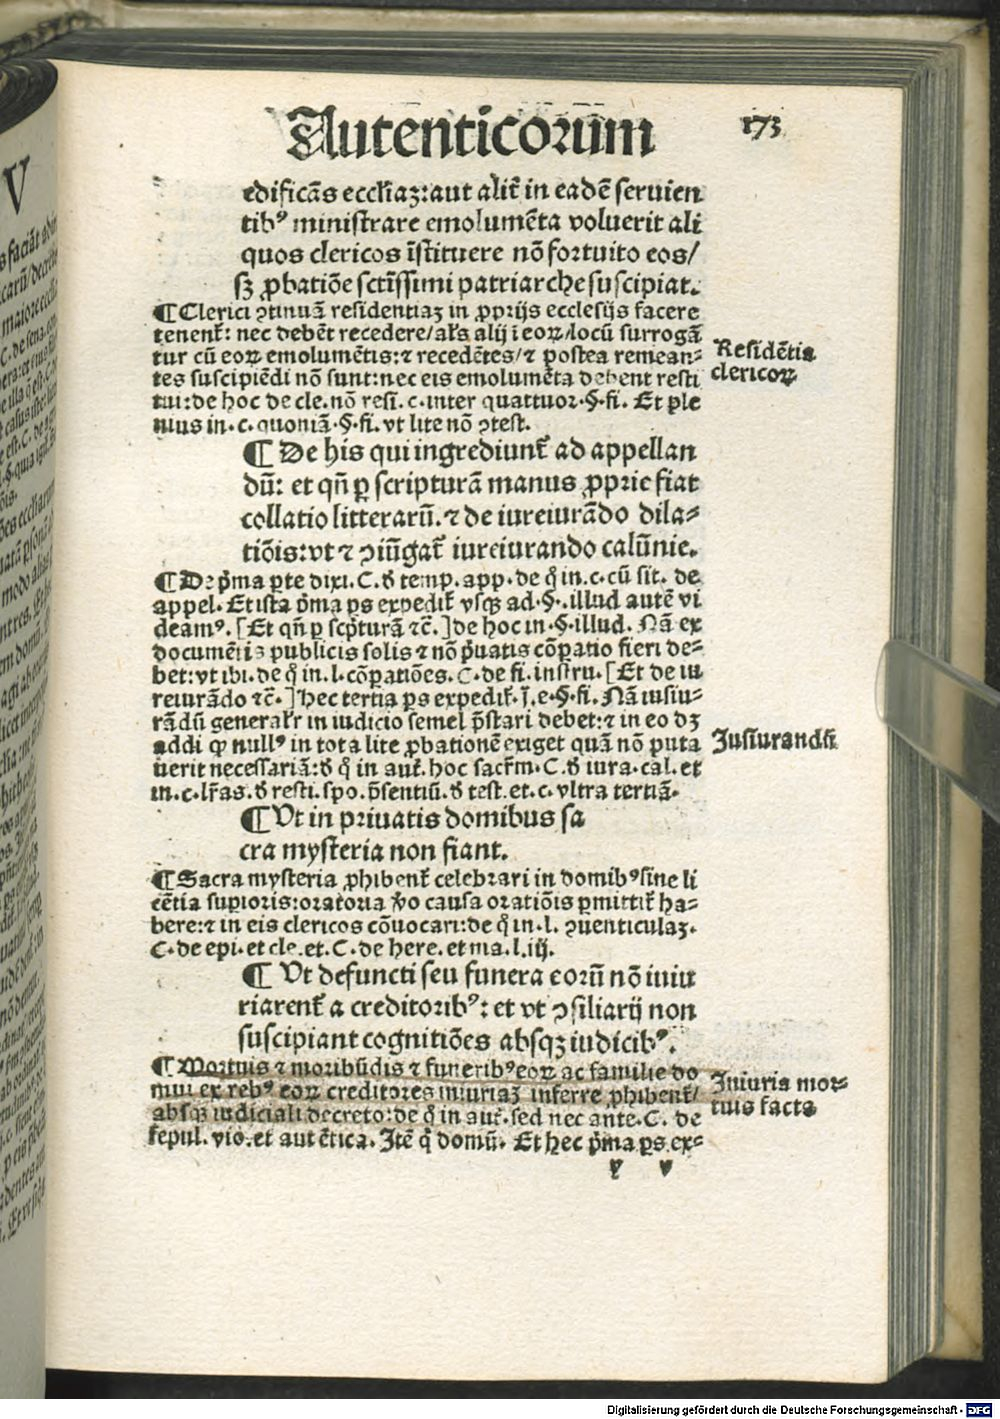 Autenticorum 173
edificãs eccl'iaz: aut alit̃ in eadẽ seruien
tibꝰ ministrare emolumẽta voluerit ali
quos clericos ĩstituere nõ fortuito eos/
sꝫ ꝓbatiõe sctĩssimi patriarche suscipiat.
¶ Clerici ꝯtinuã residentiaz in ꝓprijs ecclesijs facere
tenent̃: nec debẽt recedere/ al's alij ĩ eoꝝ locũ surrogã
tur cũ eoꝝ emolumẽtis: ⁊ recedẽtes/ ⁊ postea remean⸗
tes suscipiẽdi nõ sunt: nec eis emolumẽta debent resti
tui: de hoc de cle. nõ resi. c. inter quattuor. §. fi. Et ple
nius in. c. quoniã. §. fi. vt lite nõ ꝯtest.
Residẽtia
clericoꝝ
¶ De his qui ingrediunt̃ ad appellan
dũ: et qñ ꝑ scripturã manus ꝓprie fiat
collatio litterarũ. ⁊ de iureiurãdo dila⸗
tiõis: vt ⁊ ꝯiũgat̃ iureiurando calũnie.
¶ De p̃ma ꝑte dixi. C. đ temp. app. de q̃ in. c. cũ sit. de
appel. Et ista p̃ma ꝑs expedit̃ vsqꝫ ad. §. illud autẽ vi
deamꝰ. [Et qñ ꝑ scp̃turã ⁊c̃.] de hoc in. §. illud. Nã ex
documẽtis publicis solis ⁊ nõ p̃uatis cõꝑatio fieri de⸗
bet: vt ibi. de q̃ in. l. cõꝑatiões. C. de fi. instru. [Et de iu
reiurãdo ⁊c̃.] hec tertia ꝑs expedit̃. j̃. e. §. fi. Nã iusiu⸗
rãdũ general'r in iudicio semel p̃stari debet: ⁊ in eo dꝫ
addi ꝙ nullꝰ in tota lite ꝓbationẽ exiget quã nõ puta
uerit necessariã: đ q̃ in aut̃. hoc sacr̃m. C. đ iura. cal. et
in. c. lr̃as. đ resti. spo. p̃sentiũ. đ test. et. c. vltra tertiã.
Jusiurandũ
¶ Vt in priuatis domibus sa
cra mysteria non fiant.
¶ Sacra mysteria ꝓhibent̃ celebrari in domibꝰ sine li
cẽtia suꝑioris: oratoria ṽo causa oratiõis ꝑmittit̃ ha⸗
bere: ⁊ in eis clericos cõuocari: de q̃ in. l. ꝯuenticulaz.
C. de epi. et cle. et. C. de here. et ma. l. iij.
¶ Vt defuncti seu funera eorũ nõ iniu
riarent̃ a creditoribꝰ: et vt ꝯsiliarij non
suscipiant cognitiões absqꝫ iudicibꝰ.
¶ Mortuis ⁊ moribũdis ⁊ funeribꝰ eoꝝ ac familie do
mui ex rebꝰ eoꝝ creditores iniuriaz inferre ꝓhibent̃/
absqꝫ iudiciali decreto: de q̃ in aut̃. sed nec ante. C. de
sepul. vio. et autẽtica. Jtẽ q̃ domũ. Et hec p̃ma ꝑs ex⸗
Jniuria mor⸗
tuis facta
y v
Digitalisierung gefördert durch die Deutsche Forschungsgemeinschaft - DFG